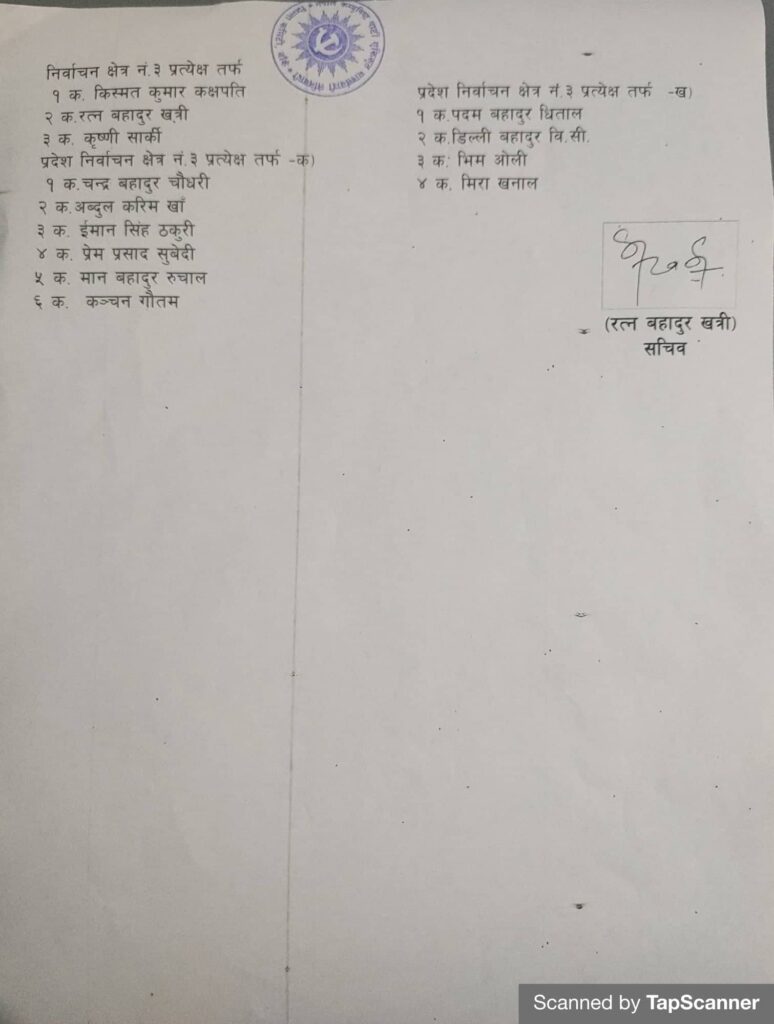 निर्वाचन क्षेत्र नं.३ प्रत्येक्ष तर्फ
१ क. किस्मत कुमार कक्षपति
२ क.रत्न बहादुर खत्री
३ क. कृष्णी सार्की
प्रदेश निर्वाचन क्षेत्र नं.३ प्रत्येक्ष तर्फ -क)
१ क.चन्द्र बहादुर चौधरी
२ क.अब्दुल करिम खाँ
३ क. ईमान सिंह ठकुरी
४ क. प्रेम प्रसाद सुबेदी
५ क. मान बहादुर रुचाल
६ क. कञ्चन गौतम
प्रदेश निर्वाचन क्षेत्र नं.३ प्रत्येक्ष तर्फ -ख)
१ क.पदम बहादुर धिताल
२ क.डिल्ली बहादुर वि.सी.
३ क. भिम ओली
४ क. मिरा खनाल
(रत्न बहादुर खत्री)
सचिव
Scanned by TapScanner